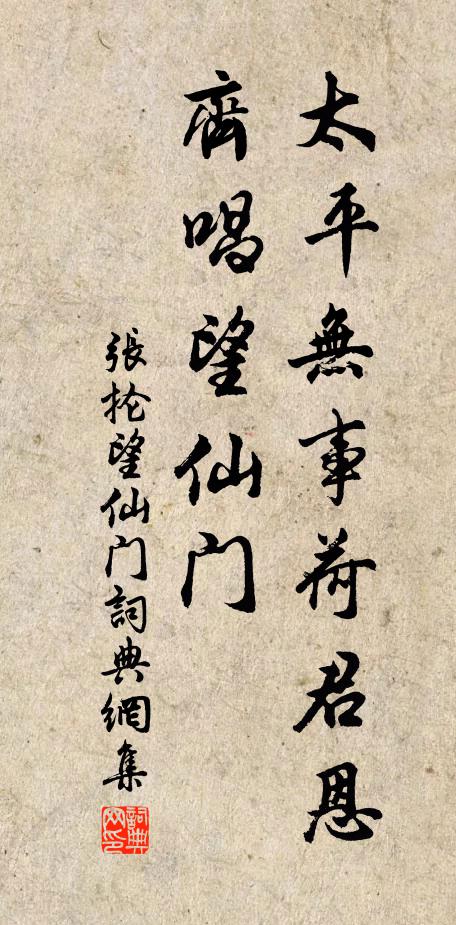 太平無事荷君恩
齊唱望仙门
張抡望仙门詞典網集
詞典网印